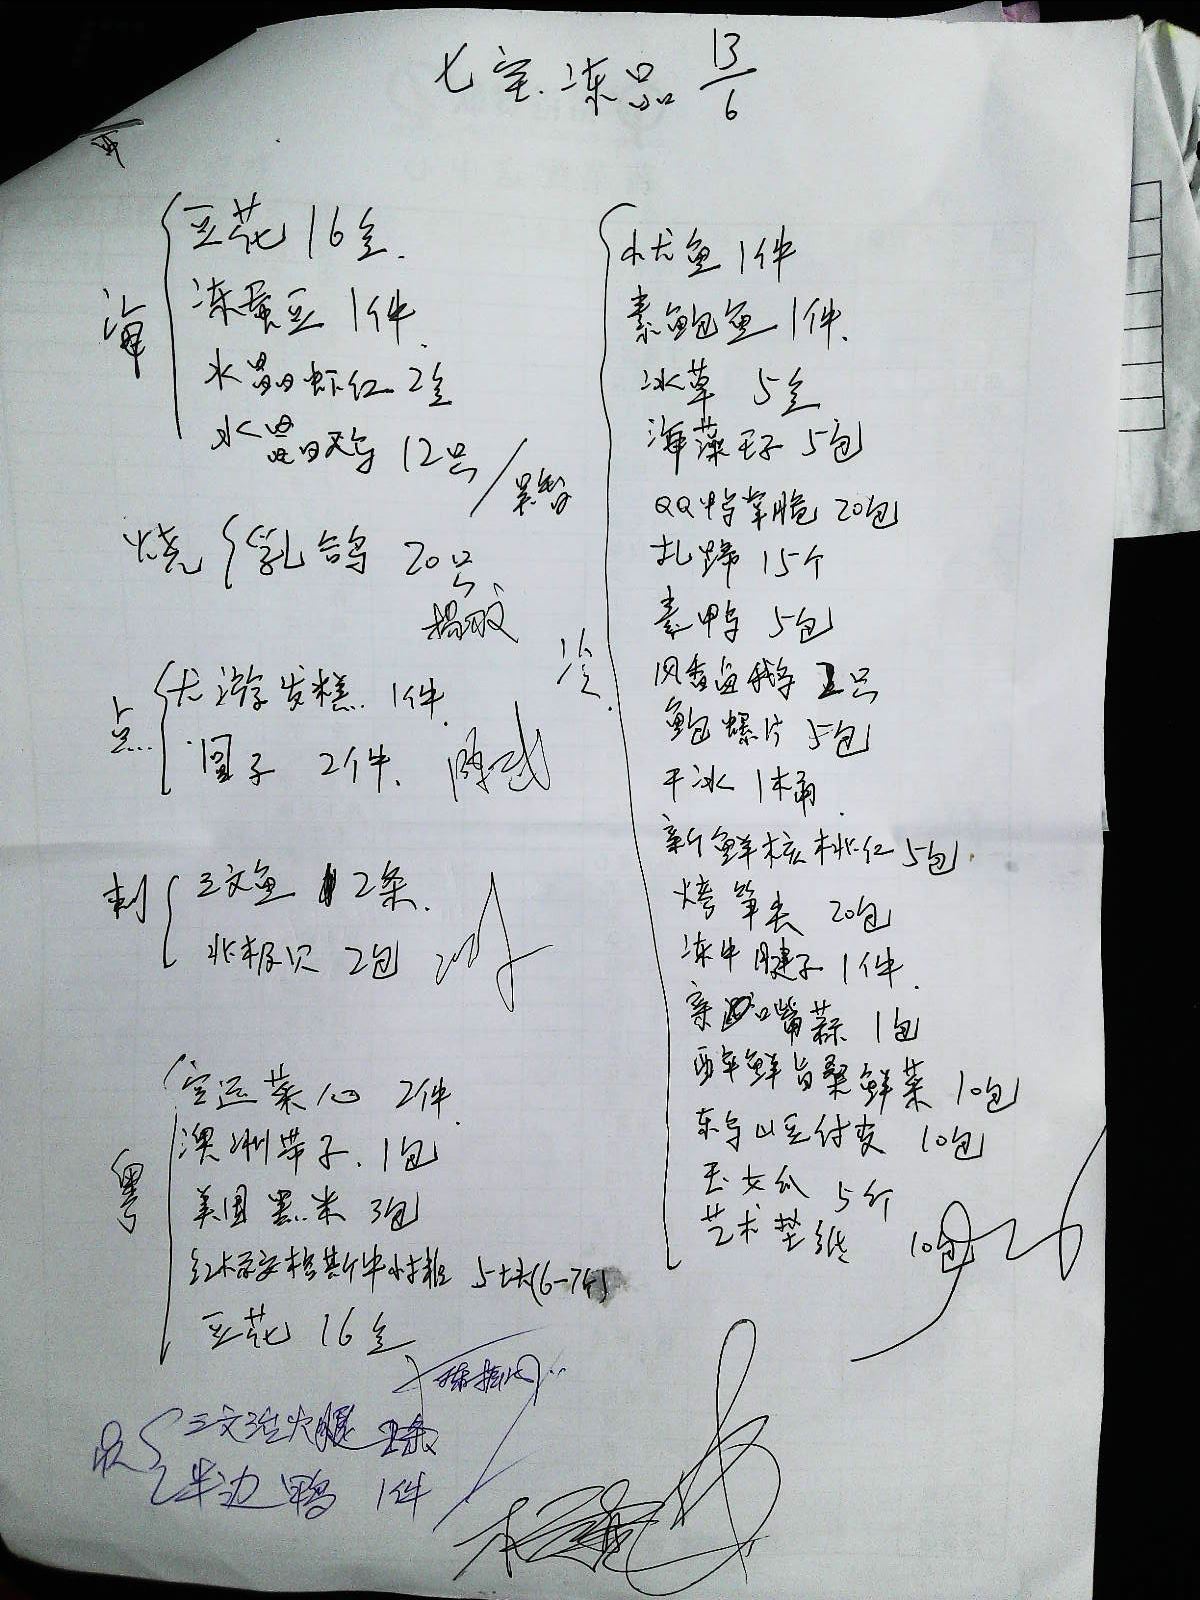 七宝冻品 13/6
海
豆花 16盒
冻蚕豆 1件
水晶虾仁 2盒
水晶鸡 12只
烧
乳鸽 20只
点
发糕 1件
圆子 2件
刺
三文鱼 2条
北极贝 2包
粤
空运菜心 2件
澳洲带子 1包
美国黑米 3包
安格斯牛 5块(6-7个)
豆花 16盒
三文治火腿 2条
半边鸭 1件
冷
鱼 1件
素鲍鱼 1件
冰草 5盒
海藻 5包
QQ鸭掌脆 20包
扎蹄 15个
素鸭 5包
风香 2只
鲍螺片 5包
干冰 1桶
新鲜核桃仁 5包
烤笋尖 20包
冻牛腱子 1件
嘴蒜 1包
鲜菜 10包
10包
玉女瓜 5个
艺术垫纸 10包